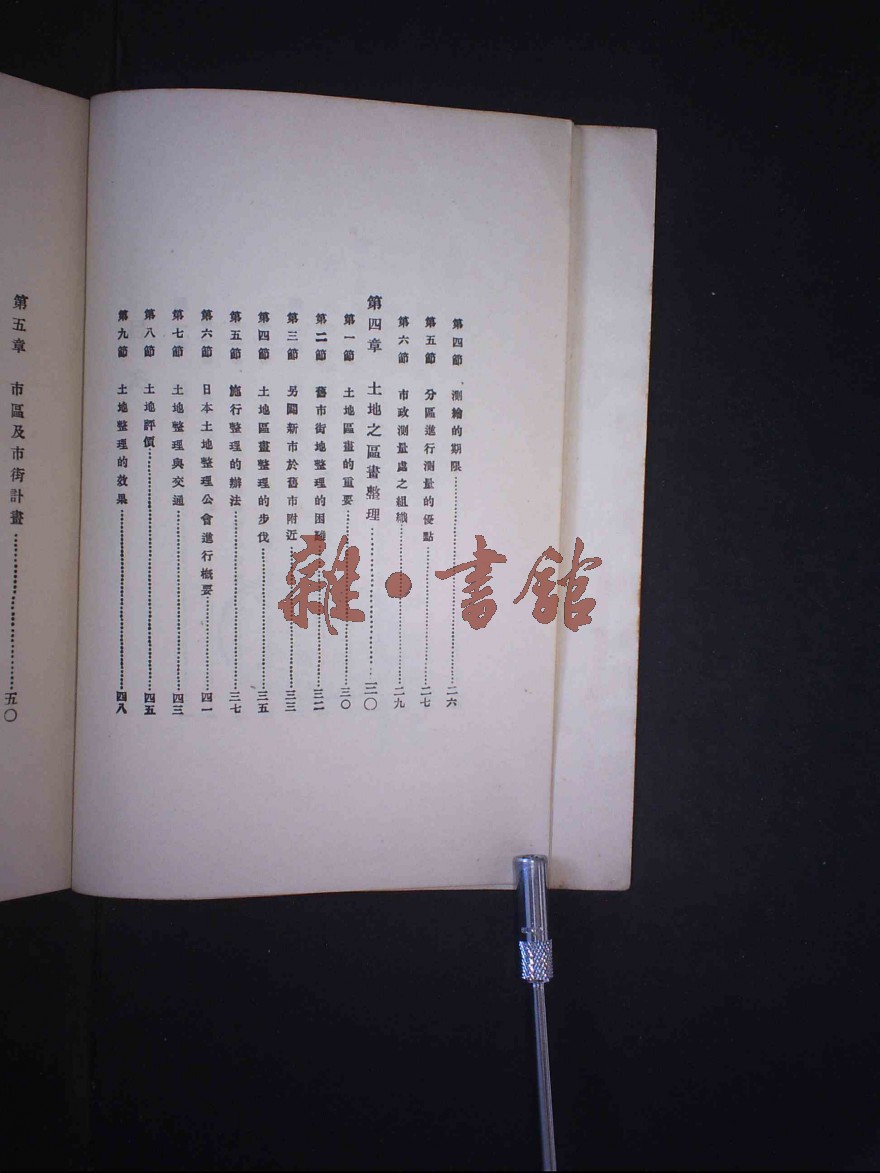 第四節 測繪的期限……二六
第五節 分區進行測量的優點……二七
第六節 市政測量處之組織……二九
第四章 土地之區畫整理……三〇
第一節 土地區畫的重要……三〇
第二節 舊市街地整理的困難……三二
第三節 另闢新市於舊市附近……三三
第四節 土地區畫整理的步伐……三五
第五節 施行整理的辦法……三七
第六節 日本土地整理公會進行概要……四一
第七節 土地整理與交通……四三
第八節 土地評價……四五
第九節 土地整理的效果……四八
第五章 市區及市街計畫……五〇
雜·書館